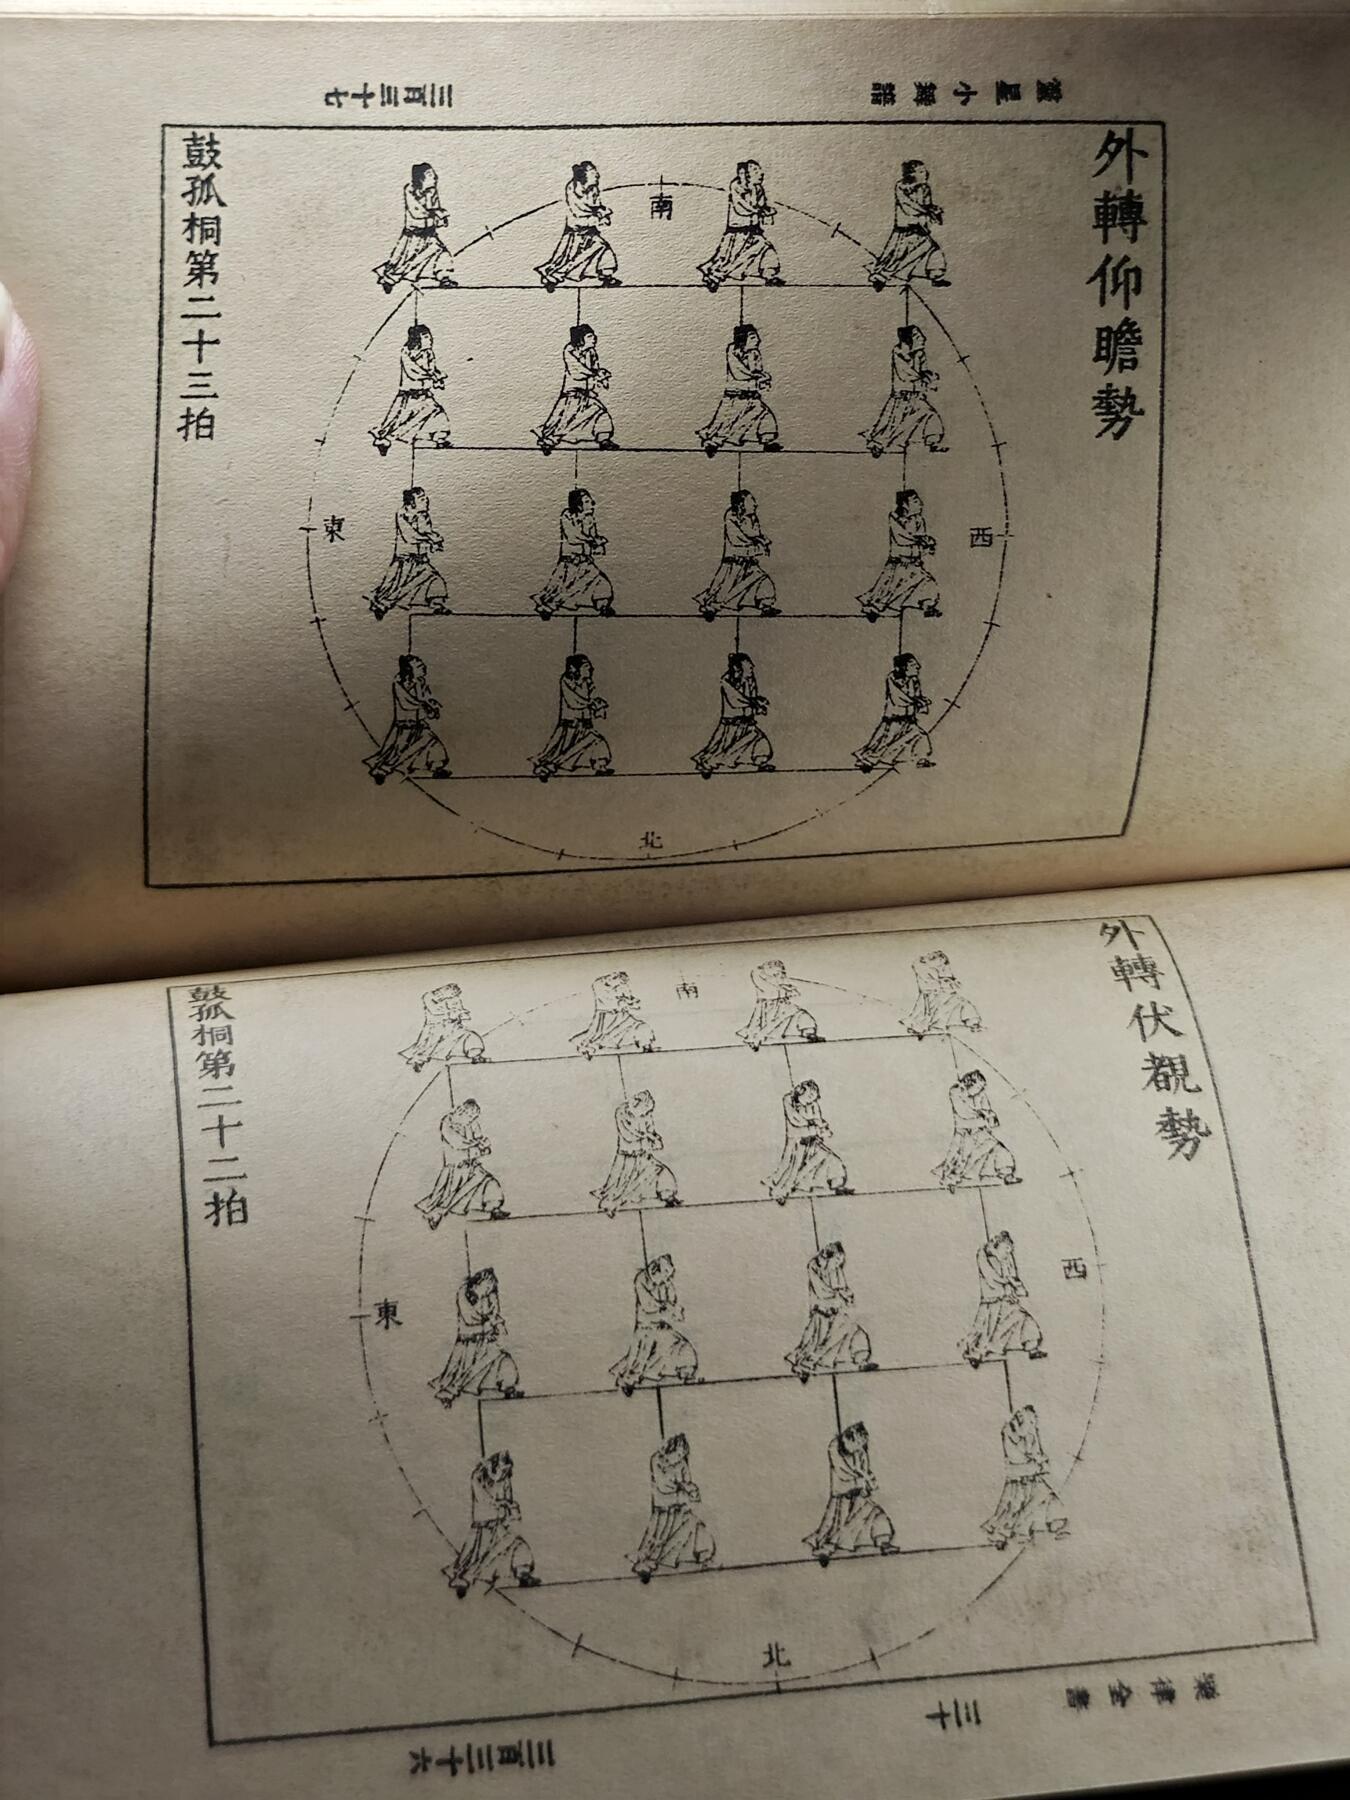 靈星小舞譜
三百三十七
外轉仰瞻勢
南
西
東
北
鼓孤桐第二十三拍
外轉伏覩勢
南
西
東
北
鼓孤桐第二十二拍
樂律全書
三十
三百三十六